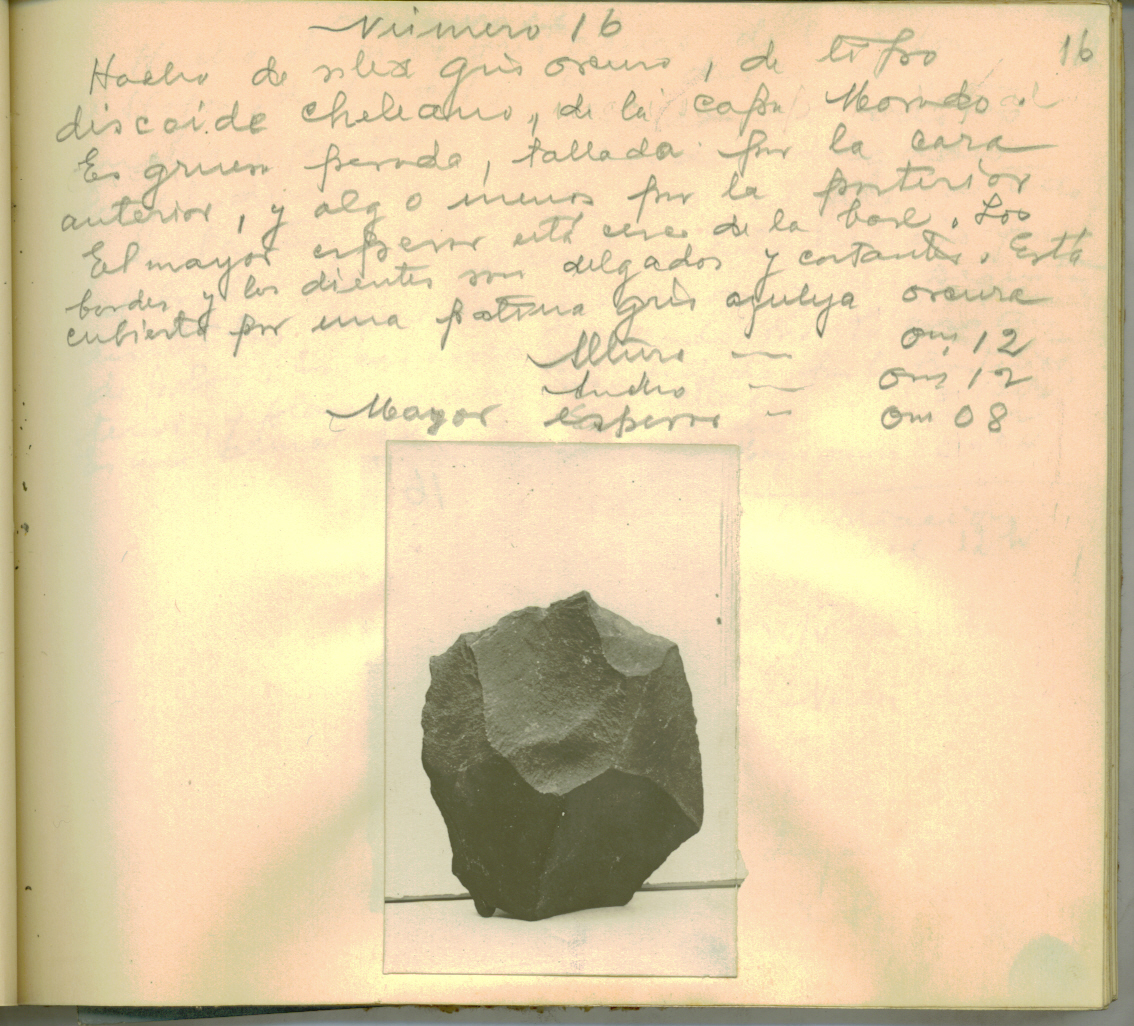 Número 16
16
Hacha de silex gris oscuro, de tipo
discoide cheleano, de la capa
Es gruesa pesada, tallada por la cara
anterior, y algo menos por la posterior
El mayor espesor está cerca de la base. Los
bordes y los dientes son delgados y cortantes. Está
cubierta por una patina gris azuleja oscura
Altura — 0m,12
Ancho — 0m,12
Mayor espesor - 0m 08